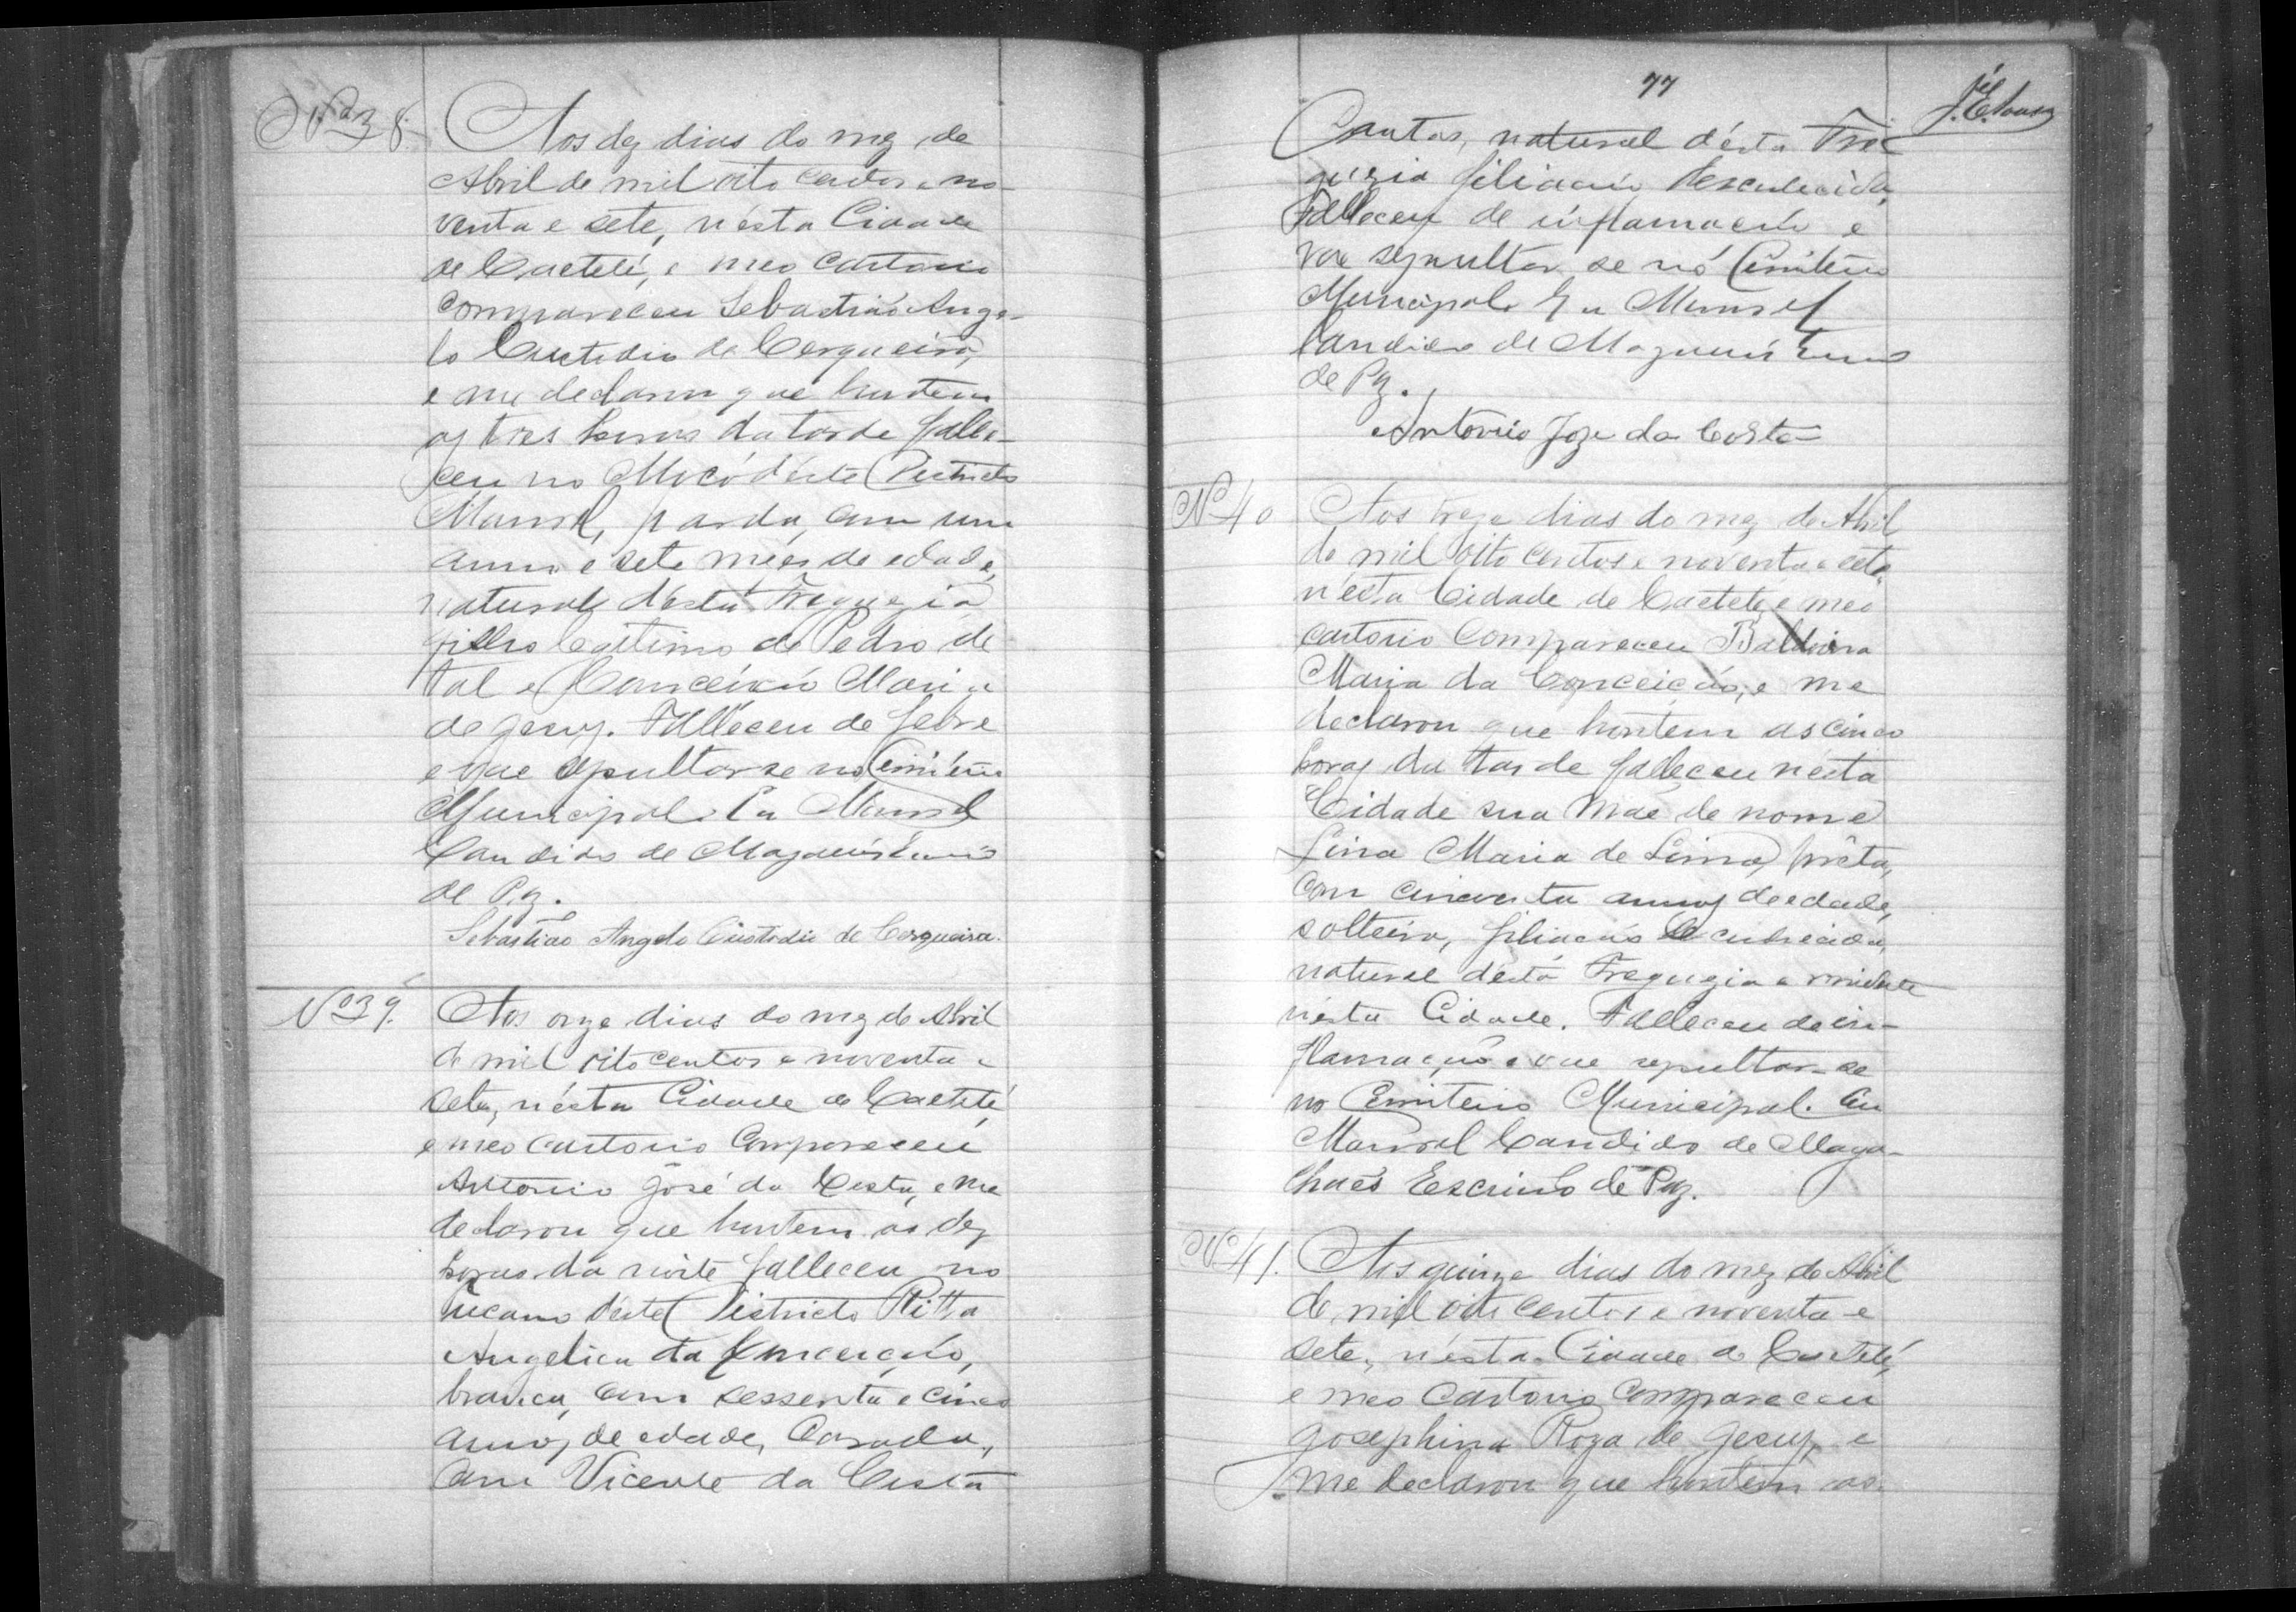 Nº 38.
Aos dez dias do mez de
Abril de mil oito centos e no-
venta e sete, n'ésta Cidade
de Caeteté, e meo Cartorio
compareceu Sebastião Ange-
lo Custodio de Cerqueira,
e me declarou que hontem
as tres horas da tarde falle-
ceu no Mocó d'este Districto
Manoel, pardo, com um
anno e sete mezes de edade,
natural d'ésta Freguezia
filho legitimo de Pedro de
tal e Conceição Maria
de Jesuz. Falleceu de febre
e vae sepultar-se no Cimiterio
Municipal. Eu Manoel
Candido de Magalhães
de Paz.
Sebastião Angelo Custodio de Cerqueira.
Nº 39.
Aos onze dias do mez de Abril
de mil oito centos e noventa e
sete, n'ésta Cidade de Caeteté,
e meo cartorio compareceu
Antonio José da Costa, e me
declarou que hontem as dez
horas da noite falleceu no
d'este Districto Ritta
Angelica da Conceição,
branca, com sessenta e cinco
annos de edade, Casada,
com Vicente da Costa
77
natural d'ésta Fre-
guezia filiação desconhecida,
Falleceu de inflamação e
vae sepultar-se nó Cimiterio
Municipal. Eu Manoel
Candido de Magalhães
de Paz.
Antonio Joze da Costa
Nº 40
Aos treze dias do mez de Abril
de mil oito centos e noventa e sete,
n'ésta Cidade de Caeteté, e meo
cartorio compareceu Balduina
Maria da Conceição, e me
declarou que hontem as cinco
horas da tarde falleceu n'ésta
Cidade sua Mãe de nome
Lina Maria de Lima, prêta,
com cincoenta annos de edade,
solteira, filiação desconhecida,
natural d'ésta Freguezia e residente
n'ésta Cidade. Falleceu de in-
flamação e vae sepultar-se
no Cimiterio Municipal. Eu
Manoel Candido de Maga-
lhães Escrivão de Paz.
Nº 41.
Aos quinze dias do mez de Abril
de mil oito centos e noventa e
sete, n'ésta Cidade de Caeteté,
e meo Cartorio compareceu
Josephina Roza de Jesuz, e
me declarou que hontem as